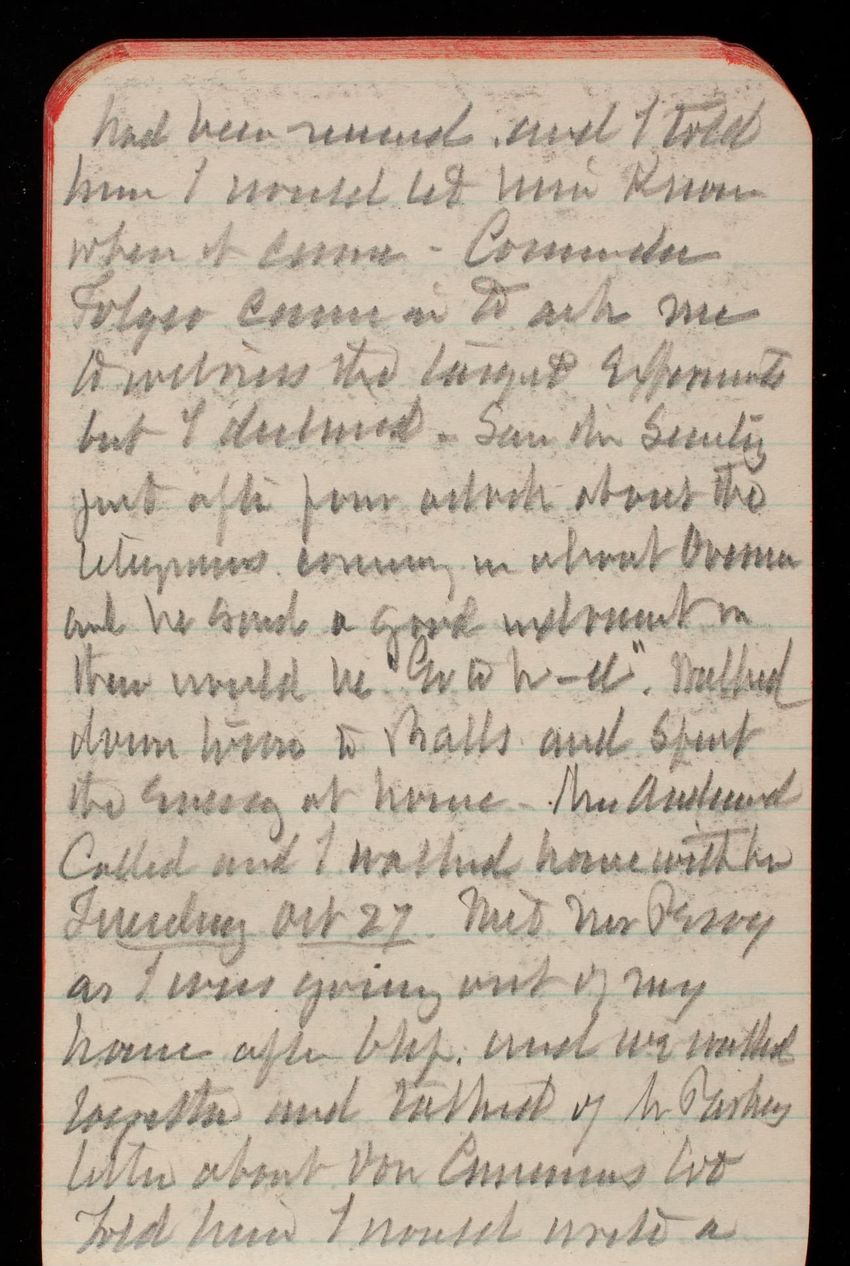 had been received and I told
him I would let him know
when it came - Commander
Folger came in to ask me
to witness the target Experiments
but I declined - Saw the Secretary
just after four oclock about the
telegrams coming in about
and he said a good indorsement on
them would be "Go to h-ll". Walked
down town to Halls and spent
the Evening at home - Mrs Andrews
Called and I walked home with her
Tuesday Oct 27. Met Mr
as I was going out of my
house after bkf. and we walked
together and talked of Mr
letter about Van lot
Told him I would write a